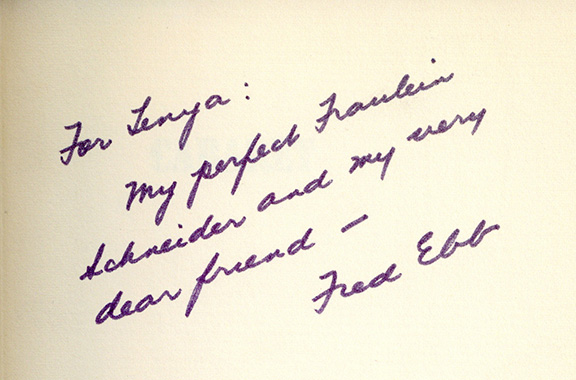 For Lenya:
My perfect Fraulein
Schneider and my very
dear friend —
Fred Ebb